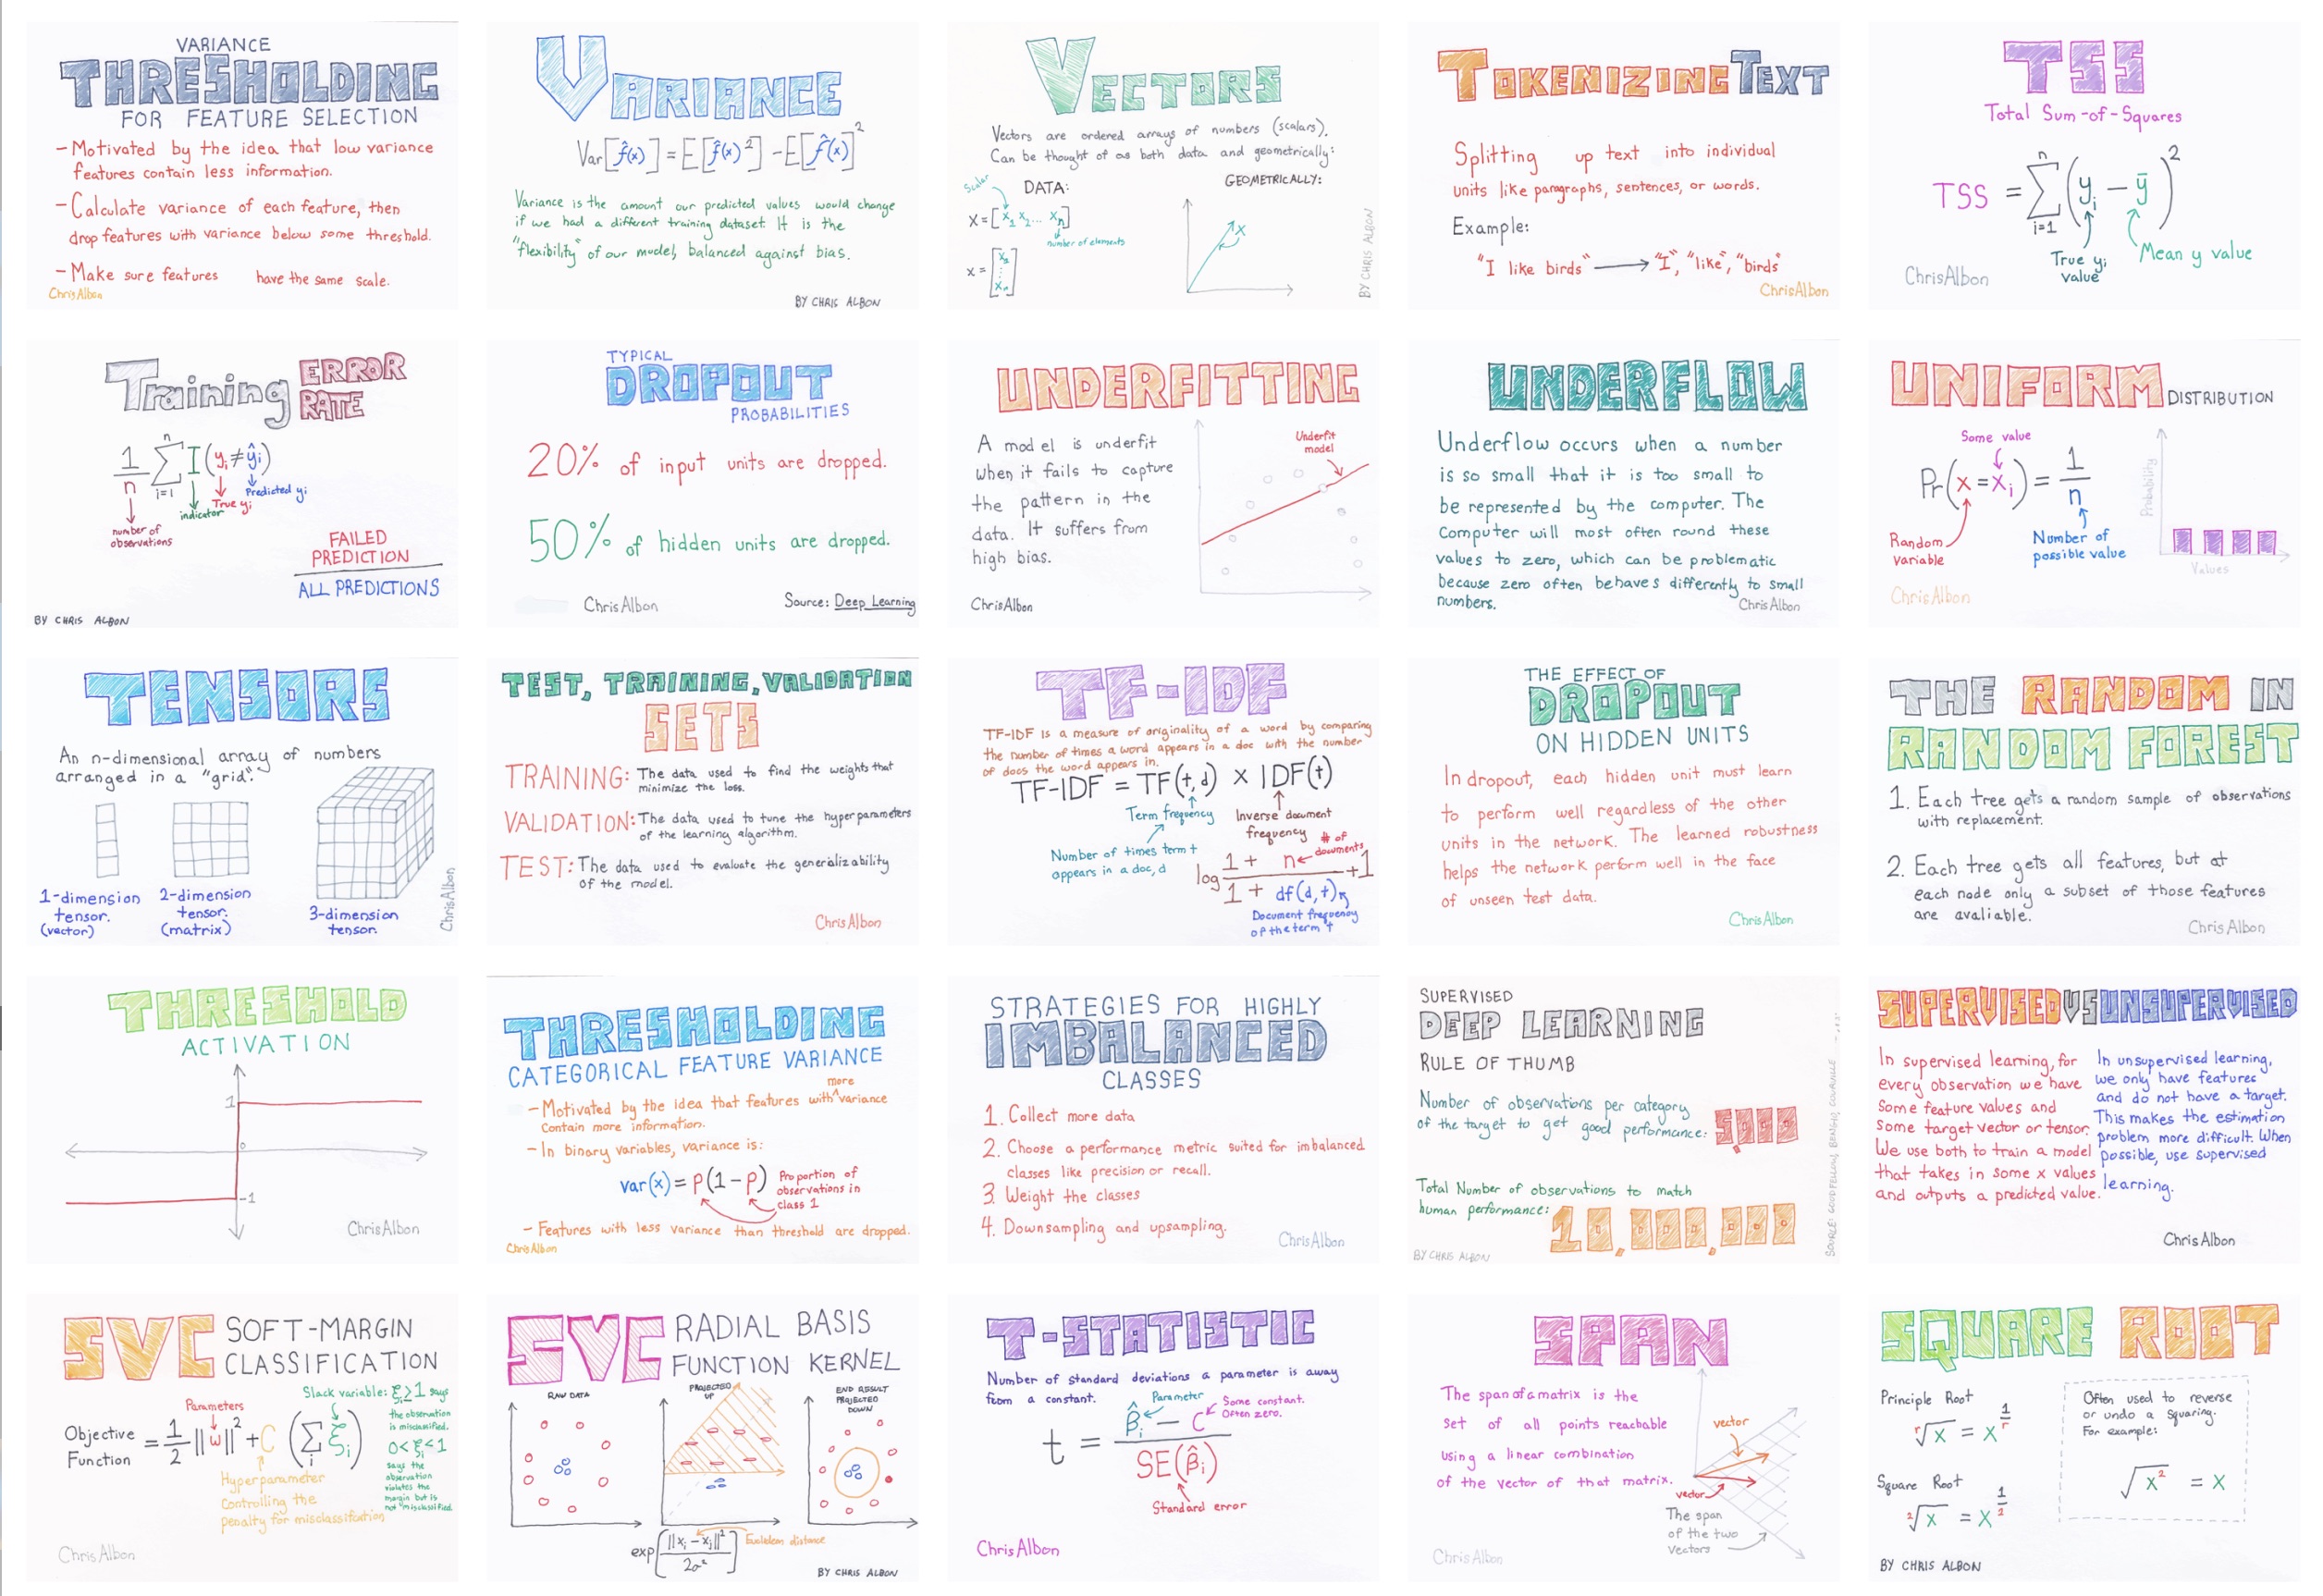 VARIANCE
THRESHOLDING
FOR FEATURE SELECTION
- Motivated by the idea that low variance
features contain less information.
- Calculate variance of each feature, then
drop features with variance below some threshold.
- Make sure features have the same scale.
Chris Albon
VARIANCE
Var[f̂(x)] = E[f̂(x)²] - E[f̂(x)]²
Variance is the amount our predicted values would change
if we had a different training dataset. It is the
"flexibility" of our model, balanced against bias.
BY CHRIS ALBON
VECTORS
Vectors are ordered arrays of numbers (scalars).
Can be thought of as both data and geometrically:
Scalar
DATA:
GEOMETRICALLY:
X = [x₁ x₂ ... xₙ]
number of elements
x = [x₁ ⋮ xₙ]
X
BY CHRIS ALBON
TOKENIZING TEXT
Splitting up text into individual
units like paragraphs, sentences, or words.
Example:
"I like birds" → "I", "like", "birds"
ChrisAlbon
TSS
Total Sum-of-Squares
TSS = Σ (yᵢ - ȳ)²
n
i=1
True yᵢ
value
Mean y value
ChrisAlbon
Training ERROR
RATE
1/n Σ I(yᵢ ≠ ŷᵢ)
n
i=1
number of
observations
indicator
True yᵢ
Predicted yᵢ
FAILED
PREDICTION
ALL PREDICTIONS
BY CHRIS ALBON
TYPICAL
DROPOUT
PROBABILITIES
20% of input units are dropped.
50% of hidden units are dropped.
ChrisAlbon
Source: Deep Learning
UNDERFITTING
A model is underfit
when it fails to capture
the pattern in the
data. It suffers from
high bias.
Underfit
model
ChrisAlbon
UNDERFLOW
Underflow occurs when a number
is so small that it is too small to
be represented by the computer. The
Computer will most often round these
values to zero, which can be problematic
because zero often behaves differently to small
numbers.
ChrisAlbon
UNIFORM DISTRIBUTION
Some value
Pr(x = xᵢ) = 1/n
Random
variable
Number of
possible value
Probability
Values
ChrisAlbon
TENSORS
An n-dimensional array of numbers
arranged in a "grid".
1-dimension
tensor.
(vector)
2-dimension
tensor.
(matrix)
3-dimension
tensor.
ChrisAlbon
TEST, TRAINING, VALIDATION
SETS
TRAINING: The data used to find the weights that
minimize the loss.
VALIDATION: The data used to tune the hyperparameters
of the learning algorithm.
TEST: The data used to evaluate the generalizability
of the model.
ChrisAlbon
TF-IDF
TF-IDF is a measure of originality of a word by comparing
the number of times a word appears in a doc with the number
of docs the word appears in.
TF-IDF = TF(t, d) × IDF(t)
Term frequency
Inverse document
frequency
Number of times term t
appears in a doc, d
# of
documents
log (1 + n)/(1 + df(d, t)) + 1
Document frequency
of the term t
THE EFFECT OF
DROPOUT
ON HIDDEN UNITS
In dropout, each hidden unit must learn
to perform well regardless of the other
units in the network. The learned robustness
helps the network perform well in the face
of unseen test data.
ChrisAlbon
THE RANDOM IN
RANDOM FOREST
1. Each tree gets a random sample of observations
with replacement.
2. Each tree gets all features, but at
each node only a subset of those features
are avaliable.
Chris Albon
THRESHOLD
ACTIVATION
1
0
-1
ChrisAlbon
THRESHOLDING
CATEGORICAL FEATURE VARIANCE
more
- Motivated by the idea that features with ^ variance
Contain more information.
- In binary variables, variance is:
var(x) = p(1 - p)
Proportion of
observations in
class 1
- Features with less variance than threshold are dropped.
Chris Albon
STRATEGIES FOR HIGHLY
IMBALANCED
CLASSES
1. Collect more data
2. Choose a performance metric suited for imbalanced
classes like precision or recall.
3. Weight the classes
4. Downsampling and upsampling.
ChrisAlbon
SUPERVISED
DEEP LEARNING
RULE OF THUMB
Number of observations per category
of the target to get good performance: 5,000
Total Number of observations to match
human performance: 10,000,000
BY CHRIS ALBON
SOURCE: GOODFELLOW, BENGIO, COURVILLE
SUPERVISED VS UNSUPERVISED
In supervised learning, for
every observation we have
Some feature values and
some target vector or tensor.
We use both to train a model
that takes in some x values
and outputs a predicted value.
In unsupervised learning,
we only have features
and do not have a target.
This makes the estimation
problem more difficult. When
possible, use supervised
learning.
Chris Albon
SVC SOFT-MARGIN
CLASSIFICATION
Slack variable: ξᵢ≥1 says
the observation
is misclassified.
0<ξᵢ<1
says the
observation
violates the
margin but is
not misclassified.
Parameters
Objective
Function = 1/2 ||w||² + C (Σ ξᵢ)
i
Hyperparameter
Controlling the
penalty for misclassification
ChrisAlbon
SVC RADIAL BASIS
FUNCTION KERNEL
RAW DATA
PROJECTED
UP
END RESULT
PROJECTED
DOWN
exp[||xᵢ - xⱼ||² / 2σ²]
Euclidean distance
BY CHRIS ALBON
T-STATISTIC
Number of standard deviations a parameter is away
from a constant.
Parameter
Some constant.
Often zero.
t = (β̂ᵢ - C) / SE(β̂ᵢ)
Standard error
ChrisAlbon
SPAN
The span of a matrix is the
set of all points reachable
using a linear combination
of the vector of that matrix.
vector
vector
The span
of the two
Vectors
ChrisAlbon
SQUARE ROOT
Principle Root
ʳ√x = x^(1/r)
Square Root
²√x = x^(1/2)
Often used to reverse
or undo a squaring.
For example:
√x² = x
BY CHRIS ALBON